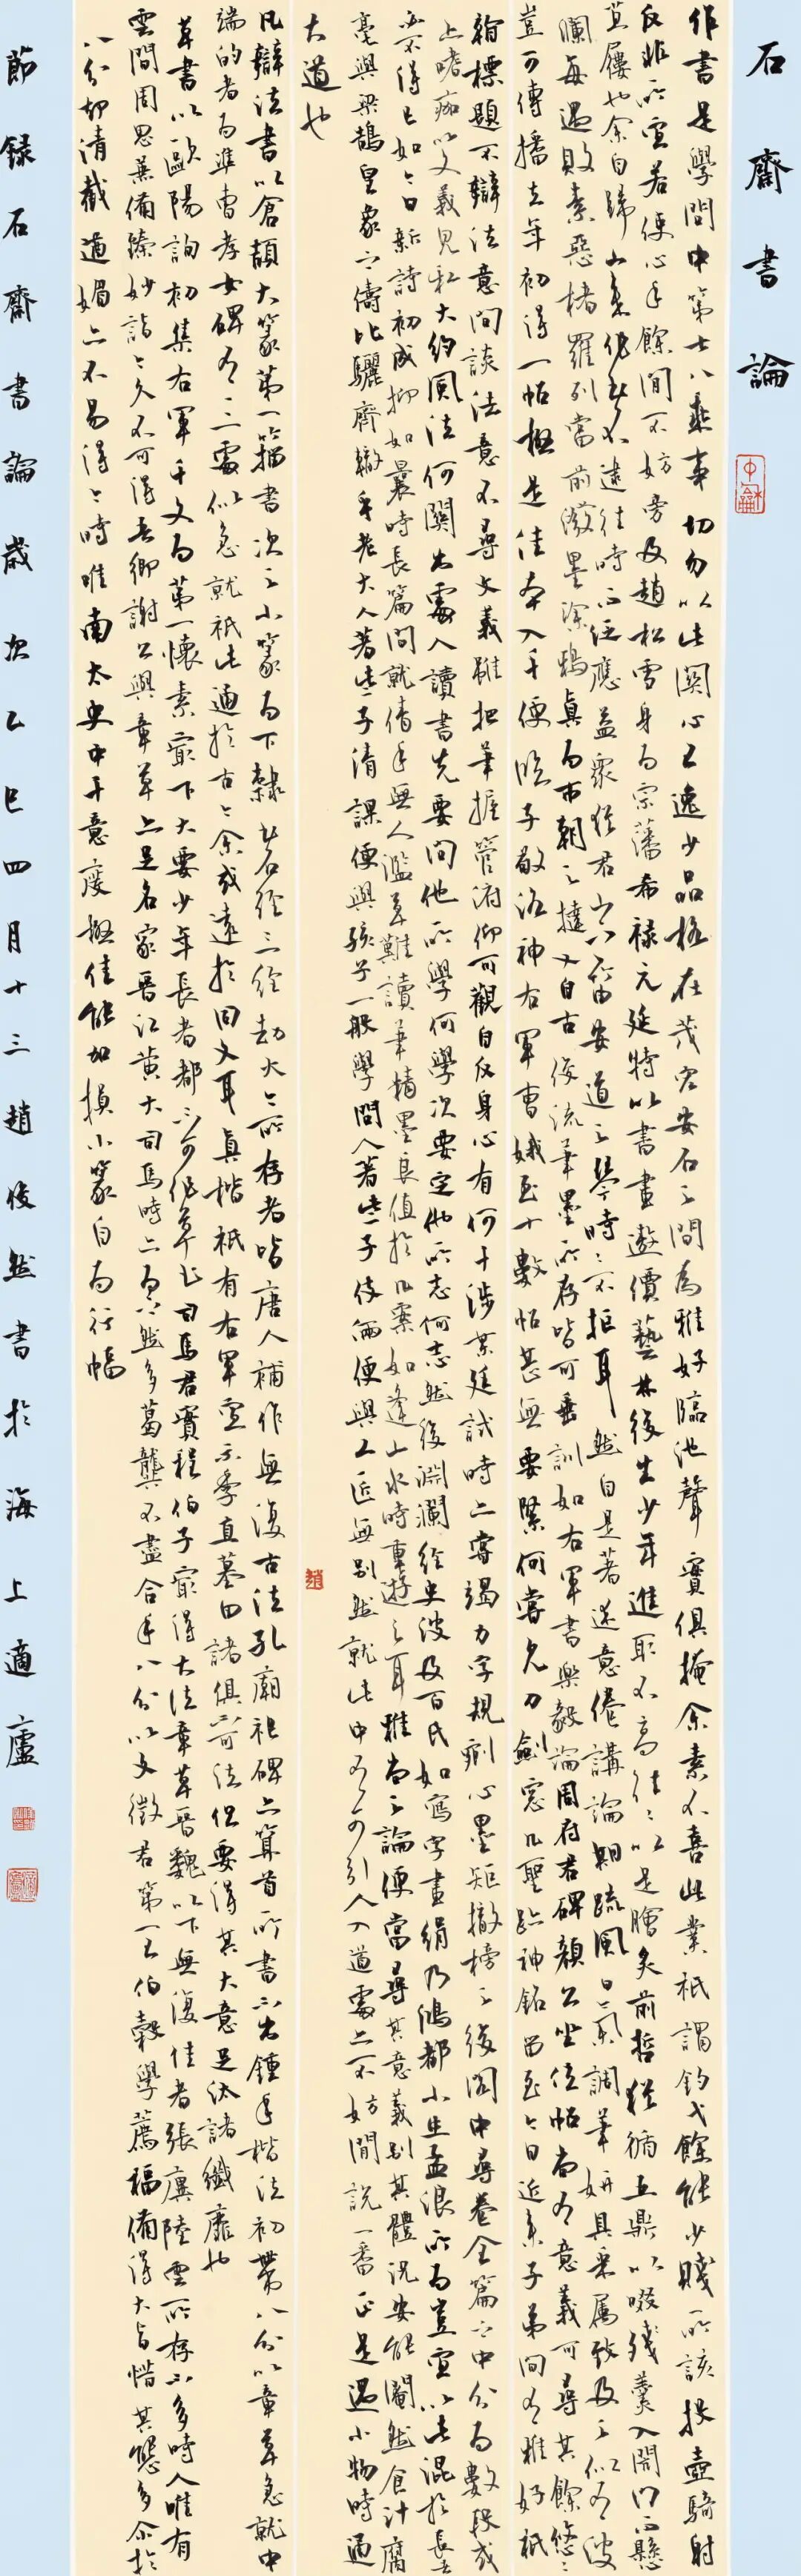 石齋書論
作書是學問中第七八乘事切勿以此關心王逸少品格在茂弘安石之間為雅好臨池聲實俱掩余素不喜此業祇謂釣弋餘能少賤所該投壺騎射
反非所宜若使心手餘閒不妨旁及趙松雪身為宗藩希祿元廷特以書畫邀價藝林後生少年進取不高往往以是膾炙前哲猶循五鼎以啜殘羹入閭門而懸
苴屨也余自歸山來作書不逮往時而泛應益眾猶君山之留安道之琴時時不拒耳然自是著述意倦講論期疏風日氣調筆妍具來屬致及之似有波
瀾每遇敗素惡楮羅列當前潑墨塗鴉真為市朝之撻又自古俊流筆墨所存皆可垂訓如右軍書樂毅論周府君碑顏公坐位帖尚有意義可尋其餘悠悠
豈可傳播去年初得一帖極是佳本入手便臨子敬洛神右軍曹娥至十數帖甚無要緊何嘗兒刀劍窗几聖趾神銘留至今日近來子弟間有雅好祇
翰標題不辯法意間談法意不尋文義雖把筆握管俯仰可觀自反身心有何干涉某廷試時亦嘗竭力字規劌心墨矩撤榜之後閣中尋卷全篇之中分為數段或
上嗜痂以文義見私大約風法何關出處人讀書先要問他所學何學次要定他所志何志然後淵瀾經史波及百氏如寫字畫絹乃鴻都小生孟浪所為豈宜以此混於長者
必不得已如今日新詩初成抑如曩時長篇間就倩手無人濫草難讀筆精墨良值於几案如逢山水時重遊之耳雅尚之論便當尋其意義別其體況安能闇然食汁腐
毫與梁鵠皇象之儔比驪齊轍乎老大人著些子清課便與孩子一般學問人著些子伎倆便與工匠無別然就此中有可引人入道處亦不妨閒說一番正是遇小物時通
大道也
凡辯法書以倉頡大篆第一籀書次之小篆為下隸書石經三經劫大今所存者皆唐人補作無復古法孔廟祖碑亦算首所書不出鍾手楷法初帶八分以章草急就中
端的者為準曹孝女碑有一二處似急就祇此通於古今余或遠於同文耳真楷祇有右軍宣示季直墓田諸俱可法但要得其大意足汰諸纖靡也
草書以歐陽詢初集右軍千文為第一懷素最下大要少年長者都不可作草書司馬君實程伯子最得大法章草晉魏以下無復佳者張虞陸雲所存不多時人唯有
雲間周思兼備臻妙詣今久不可得吾鄉謝公與章草亦是名家晉江黃大司馬時亦為之然多葛龔不盡合手八分以文徵君第一王伯穀學薦福備得大旨惜其態多余於
八分切清截遒媚亦不易得今時唯南太史中干意度極佳能加損小篆自為行幅
節録石齋書論歲次乙巳四月十三趙俊然書於海上適廬